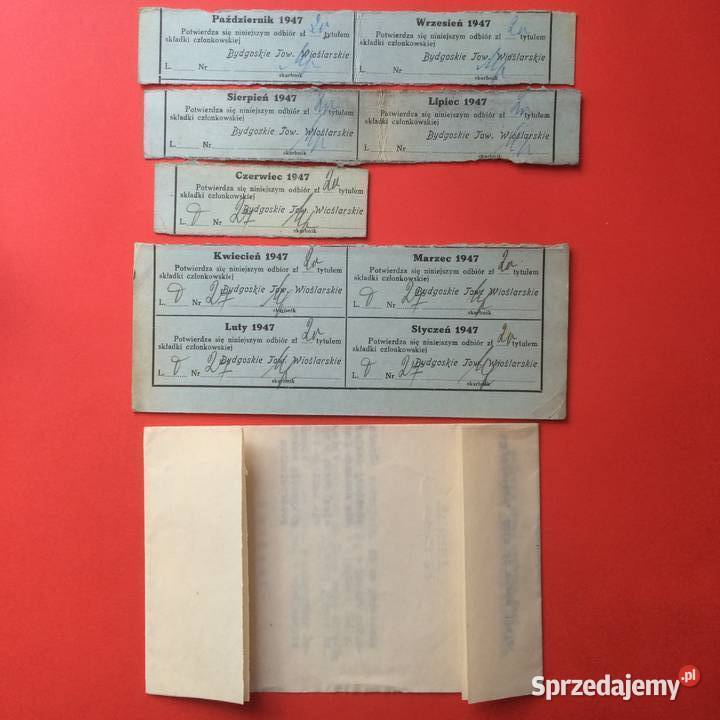 Październik 1947
Potwierdza się niniejszym odbiór zł tytułem
składki członkowskiej
Bydgoskie Tow. Wioślarskie
L. Nr
skarbnik
Wrzesień 1947
Potwierdza się niniejszym odbiór zł tytułem
składki członkowskiej
Bydgoskie Tow. Wioślarskie
L. Nr
skarbnik
Sierpień 1947
Potwierdza się niniejszym odbiór zł tytułem
składki członkowskiej
Bydgoskie Tow. Wioślarskie
L. Nr
skarbnik
Lipiec 1947
Potwierdza się niniejszym odbiór zł tytułem
składki członkowskiej
Bydgoskie Tow. Wioślarskie
L. Nr
skarbnik
Czerwiec 1947
Potwierdza się niniejszym odbiór zł tytułem
składki członkowskiej
Bydgoskie Tow. Wioślarskie
L. Nr 27
skarbnik
Kwiecień 1947
Potwierdza się niniejszym odbiór zł tytułem
składki członkowskiej
Bydgoskie Tow. Wioślarskie
L. Nr 27
skarbnik
Marzec 1947
Potwierdza się niniejszym odbiór zł tytułem
składki członkowskiej
Bydgoskie Tow. Wioślarskie
L. Nr 27
skarbnik
Luty 1947
Potwierdza się niniejszym odbiór zł tytułem
składki członkowskiej
Bydgoskie Tow. Wioślarskie
L. Nr 27
skarbnik
Styczeń 1947
Potwierdza się niniejszym odbiór zł tytułem
składki członkowskiej
Bydgoskie Tow. Wioślarskie
L. Nr 27
skarbnik
Sprzedajemy.pl